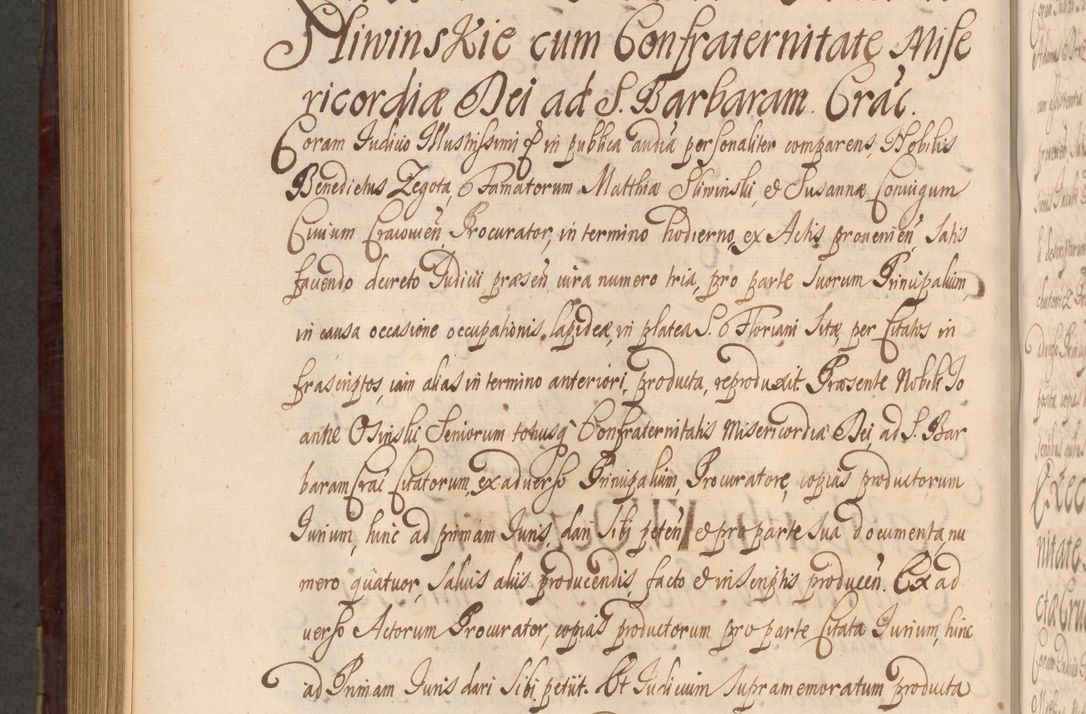 Sliwinskie cum Confraternitate Mise
ricordiæ Dei ad S. Barbaram. Crac.
Coram Judicio Illustrissimi & in publica audia personaliter comparens, Nobilis
Benedictus Zegota, Famatorum Matthiæ Sliwinski, & Susannæ Conjugum
Civium Cracovien, Procurator, in termino hodierno, ex Actis provenien, satis
faciendo decreto Judicii præsen, vira numero tria, pro parte suorum Principalium,
in causa occasione occupationis, lapideæ, in platea S. Floriani sitæ, per Citatos in
frascriptos, iam alias in termino anteriori, producta, reproduxit Præsente Nobili Jo
anne Osinski Seniorum totiusq Confraternitatis Misericordiæ Dei, ad S. Bar
baram Crac Citatorum, ex adverso Principalium, Procuratore, copias productorum
Jurium, hinc ad primam Juris, dari sibi peten & pro parte sua documenta nu
mero quatuor, salvis aliis producendis, facto & in scriptis producen. Ex ad
verso Actorum Procurator, copias productorum pro parte Citata Jurium, hinc
ad Primam Juris dari sibi petiit. Et Judicium supramemoratum producta